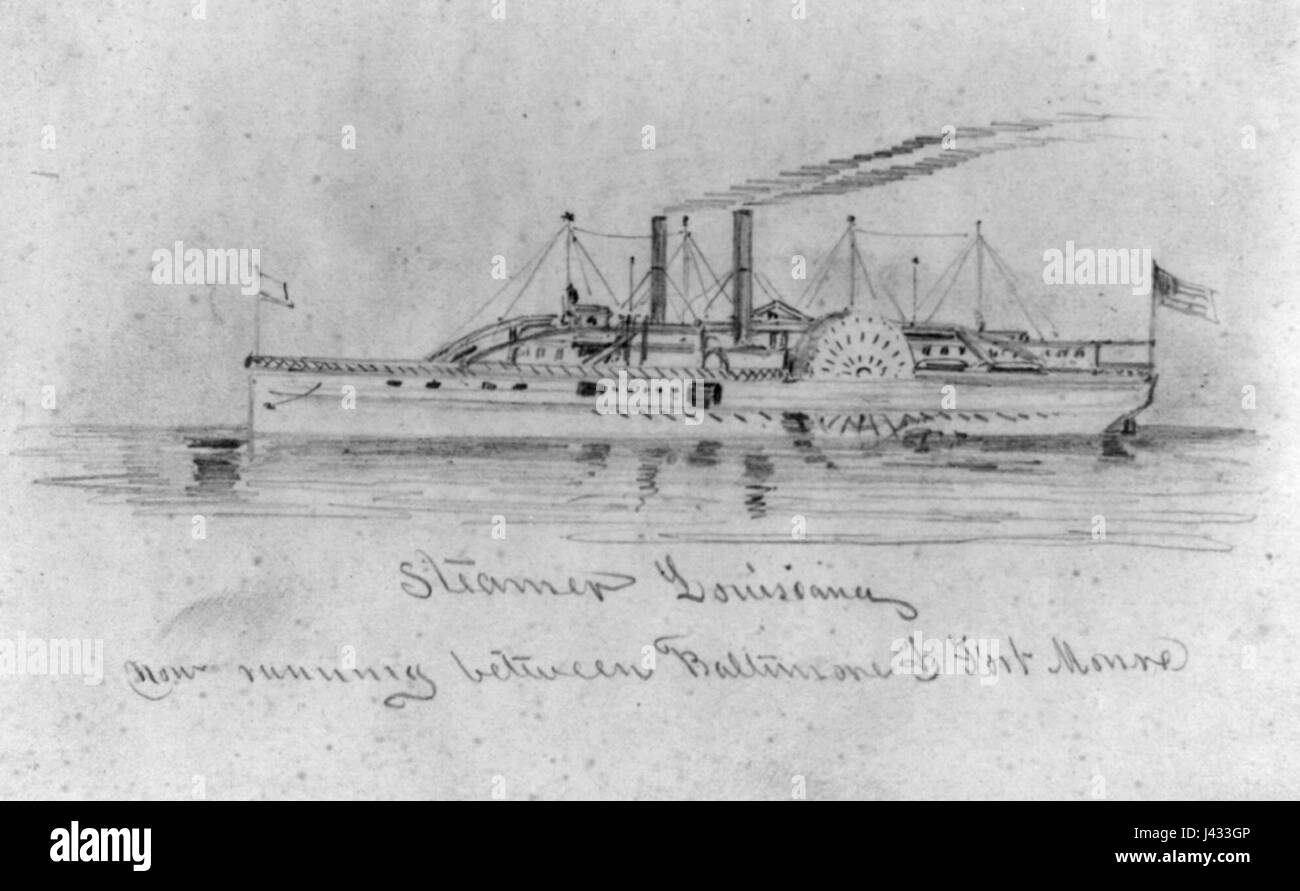 Steamer Louisiana
now running between Baltimore & Fort Monroe
alamy
alamy
alamy
Image ID: J433GP
www.alamy.com